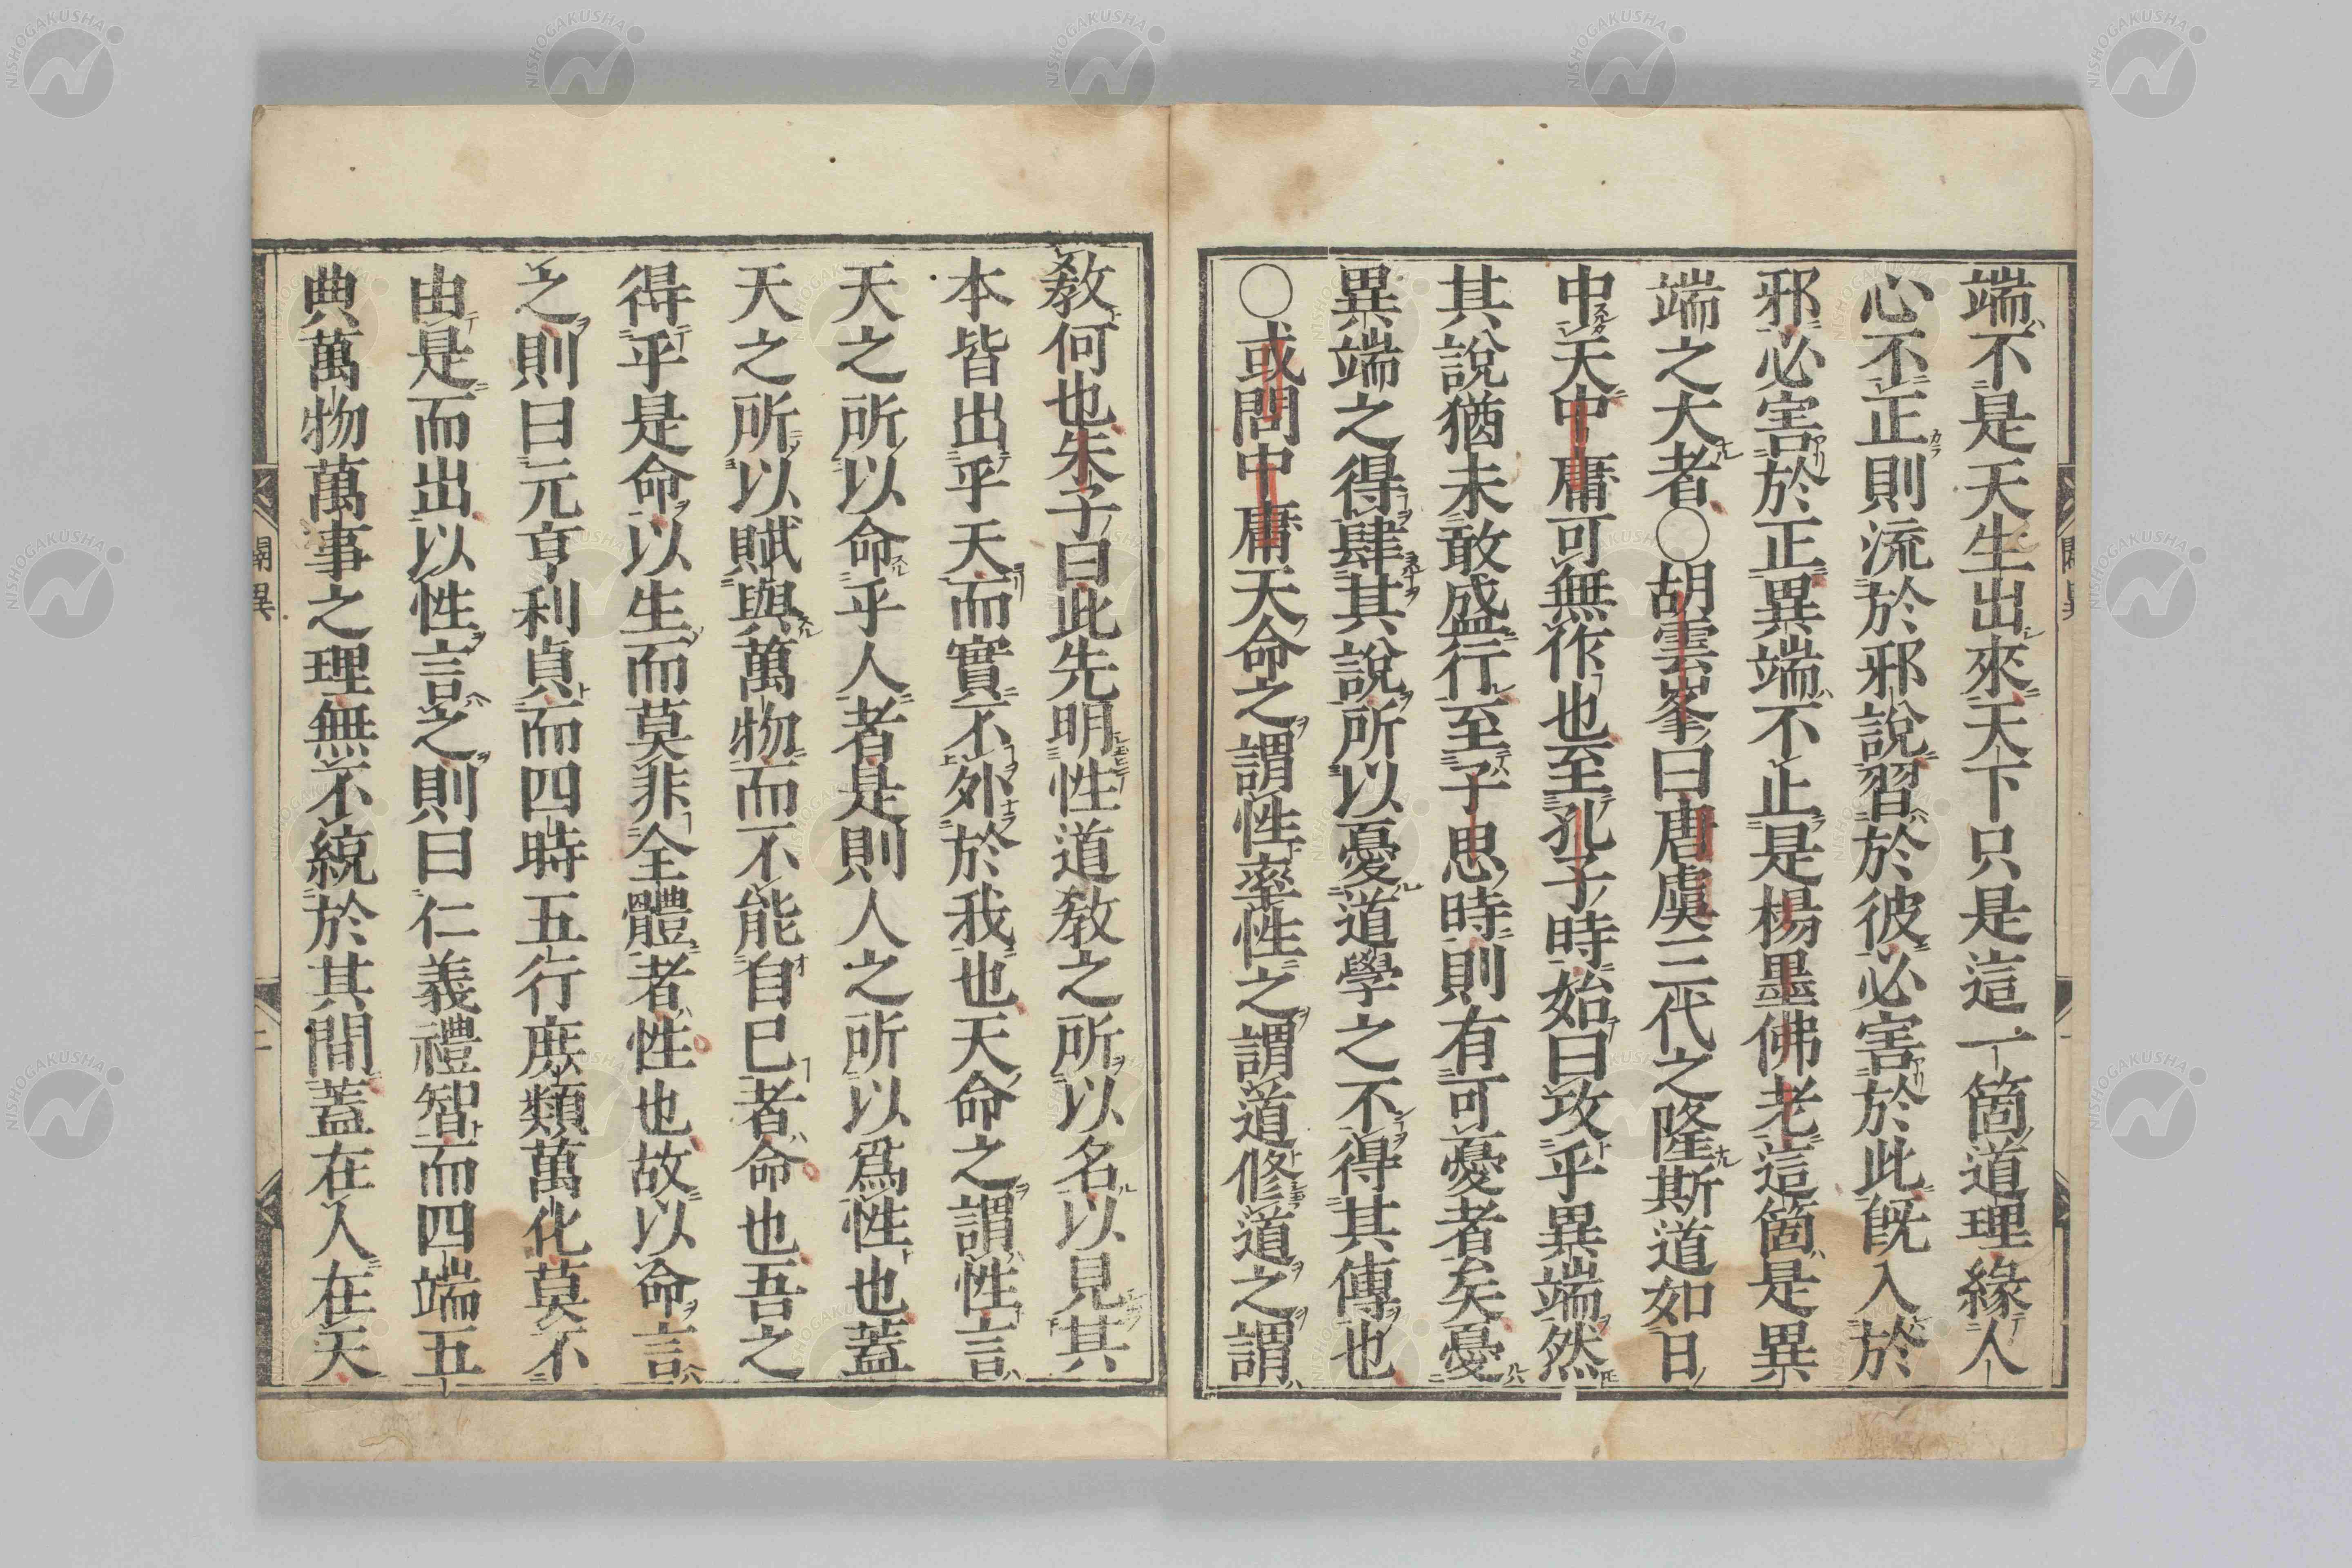 端不是天生出來天下只是這一箇道理緣人
心不正則流於邪說習於彼必害於此旣入於
邪必害於正異端不止是楊墨佛老這箇是異
端之大者〇胡雲峯曰唐虞三代之隆斯道如日
中天中庸可無作也至孔子時始曰攻乎異端然
其說猶未敢盛行至子思時則有可憂者矣憂
異端之得肆其說所以憂道學之不得其傳也
〇或問中庸天命之謂性率性之謂道修道之謂
敎何也朱子曰此先明性道敎之所以名以見其
本皆出乎天而實不外於我也天命之謂性言
天之所以命乎人者是則人之所以爲性也蓋
天之所以賦與萬物而不能自已者命也吾之
得乎是命以生而莫非全體者性也故以命言
之則曰元亨利貞而四時五行庶類萬化莫不
由是而出以性言之則曰仁義禮智而四端五
典萬物萬事之理無不統於其間蓋在人在天
闢異
二
NISHOGAKUSHA